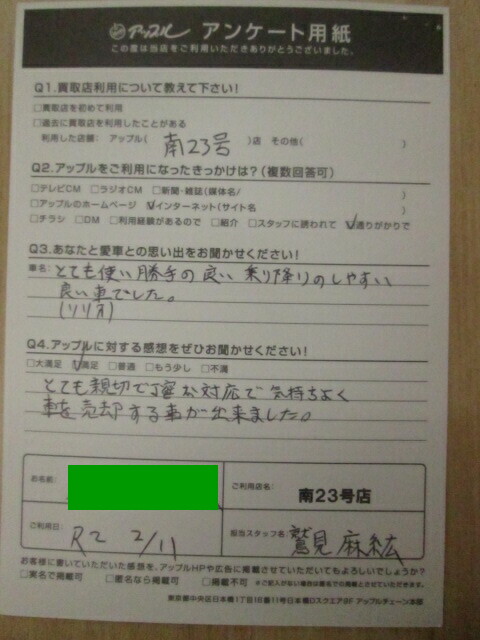 アップル アンケート用紙
この度は当店をご利用いただきありがとうございました。
Q1.買取店利用について教えて下さい!
□買取店を初めて利用
□過去に買取店を利用したことがある
利用した店舗: アップル( 南23号 )店 その他( )
Q2.アップルをご利用になったきっかけは?(複数回答可)
□テレビCM □ラジオCM □新聞・雑誌(媒体名/ )
□アップルのホームページ ☑インターネット(サイト名 )
□チラシ □DM □利用経験があるので □紹介 □スタッフに誘われて ☑通りがかりで
Q3.あなたと愛車との思い出をお聞かせください!
車名: とても使い勝手の良い 乗り降りのしやすい
良い車でした。
Q4.アップルに対する感想をぜひお聞かせください!
□大満足 ☑満足 □普通 □もう少し □不満
とても親切で丁寧な対応で気持ちよく
車を売却する事が出来ました。
お名前:
ご利用店名:
南23号店
ご利用日: R2 2/11
担当スタッフ名: 鷲見 麻紘
お客様に書いていただいた感想を、アップルHPや広告に掲載させていただいてもよろしいでしょうか?
□実名で掲載可 □匿名なら掲載可 □掲載不可 ※ご記入がない場合は匿名での掲載とさせていただきます。
東京都中央区日本橋1丁目16番11号日本橋Dスクエア8F アップルチェーン本部